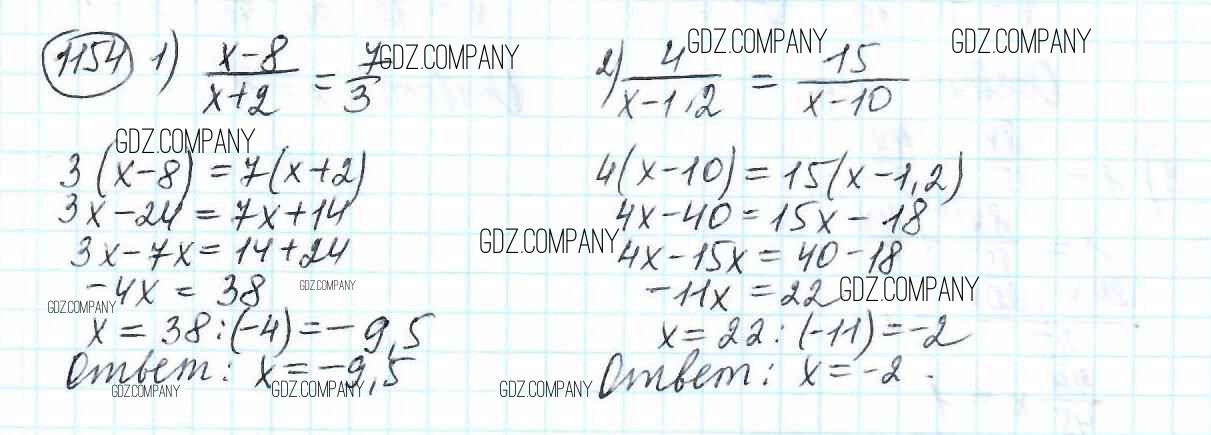 1154 1) (x-8)/(x+2) = 7/3
3(x-8) = 7(x+2)
3x-24 = 7x+14
3x-7x = 14+24
-4x = 38
x = 38:(-4) = -9,5
Ответ: x = -9,5
2) 4/(x-1,2) = 15/(x-10)
4(x-10) = 15(x-1,2)
4x-40 = 15x-18
4x-15x = 40-18
-11x = 22
x = 22:(-11) = -2
Ответ: x = -2.
GDZ.COMPANY
GDZ.COMPANY
GDZ.COMPANY
GDZ.COMPANY
GDZ.COMPANY
GDZ.COMPANY
GDZ.COMPANY
GDZ.COMPANY
GDZ.COMPANY
GDZ.COMPANY
GDZ.COMPANY